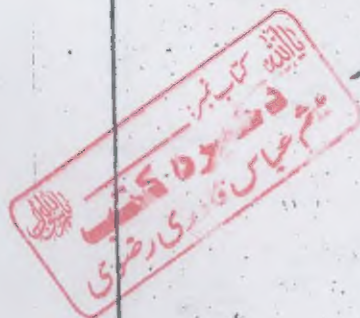 یا اللہ کتاب نمبر:
ذخیرہ کتب
میثم عباس قادری رضوی